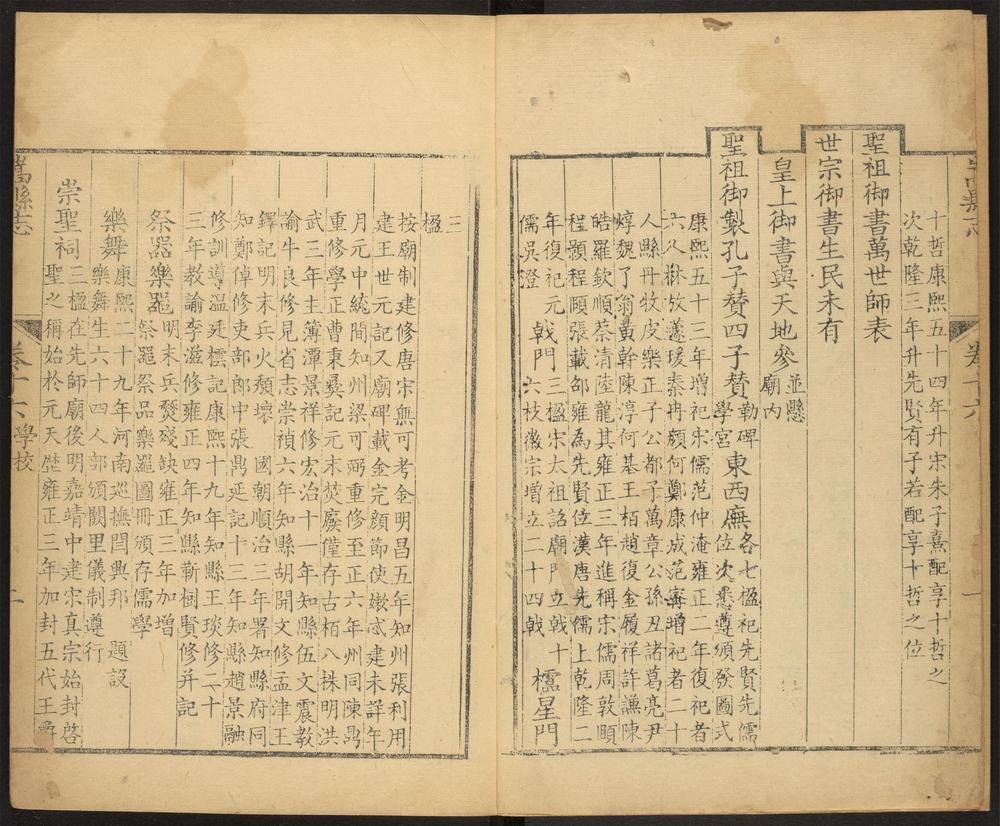 嵩縣志
卷十六
一
十哲康熙五十四年升宋朱子熹配享十哲之
次乾隆三年升先賢有子若配享十哲之位
聖祖御書萬世師表
世宗御書生民未有
皇上御書與天地參並懸
廟內
聖祖御製孔子贊四子贊勒碑
學宮東西廡各七楹祀先賢先儒
位次悉遵頒發圖式
康熙五十三年增祀宋儒范仲淹雍正二年復祀者
六人林放蘧瑗秦冉顏何鄭康成范甯增祀者二十
人縣丹牧皮樂正子公都子萬章公孫丑諸葛亮尹
焞魏了翁黃幹陳淳何基王栢趙復金履祥許謙陳
皓羅欽順蔡清陸龍其雍正三年進稱宋儒周敦頤
程顥程頤張載邵雍爲先賢位漢唐先儒上乾隆二
年復祀元
儒吳澄
戟門三楹宋太祖詔廟門立戟十
六枝徽宗增立二十四戟
櫺星門
三
楹
按廟制建修唐宋無可考金明昌五年知州張利用
建王世元記又廟碑載金完顏節使嫩忒建未詳年
月元中統間知州梁可弼重修至正六年州同陳鼎
重修學正曹秉彛記元末焚廢僅存古栢八株明洪
武三年主簿潭景祥修宏治十一年知縣伍文震教
諭牛良修見省志崇禎六年知縣胡開文修孟津王
鐸記明末兵火頽壞　國朝順治三年署知縣府同
知鄭倬修吏部郎中張鼎延記十三年知縣趙景融
修訓導溫廷櫺記康熙十九年知縣王琰修二十
三年教諭李滋修雍正四年知縣靳樹賢修并記
祭器樂噐明末兵燹殘缺雍正三年加增
祭噐祭品樂噐圖冊頒存儒學
樂舞康熙二十九年河南巡撫閆興邦　題設
樂舞生六十四人部頒闕里儀制遵行
崇聖祠三楹在先師廟後明嘉靖中建宋真宗始封啓
聖之稱始於元天歴雍正三年加封五代王爵
嵩縣志
卷十六　學校
二